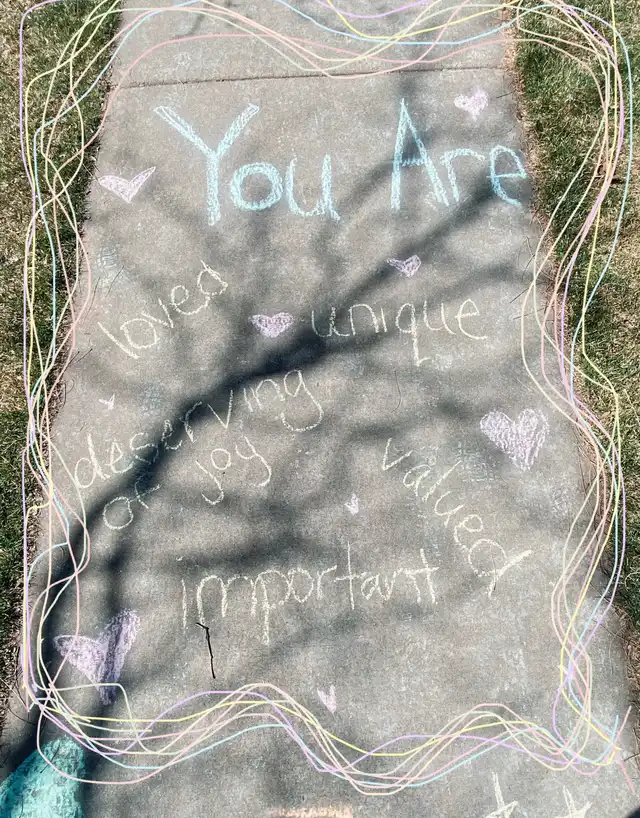 You Are
loved
unique
deserving
of joy
valued
important